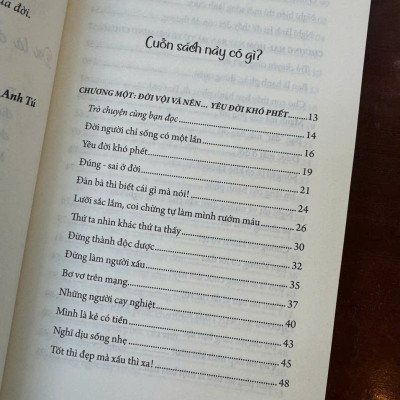 đời.
Anh Tú
Cuốn sách này có gì?
CHƯƠNG MỘT: ĐỜI VỘI VÀ NÊN... YÊU ĐỜI KHÓ PHẾT......13
Trò chuyện cùng bạn đọc......14
Đời người chỉ sống có một lần......16
Yêu đời khó phết......19
Đúng - sai ở đời......21
Đàn bà thì biết cái gì mà nói!......24
Lưỡi sắc lắm, coi chừng tự làm mình rướm máu......26
Thứ ta nhìn khác thứ ta thấy......30
Đừng thành độc dược......32
Đừng làm người xấu......35
Bơ vơ trên mạng......37
Những người cay nghiệt......40
Mình là kẻ có tiền......43
Nghĩ dịu sống nhẹ......45
Tốt thì đẹp mà xấu thì xa!......48